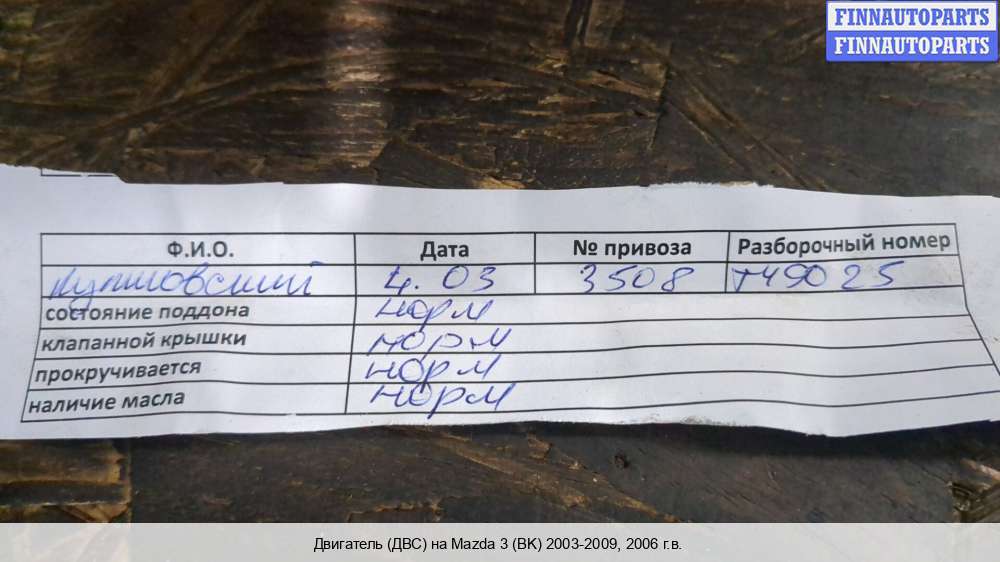 FINNAUTOPARTS
FINNAUTOPARTS
Ф.И.О. Дата № привоза Разборочный номер
4.03 3508 т49025
состояние поддона норм
клапанной крышки норм
прокручивается норм
наличие масла норм
Двигатель (ДВС) на Mazda 3 (BK) 2003-2009, 2006 г.в.